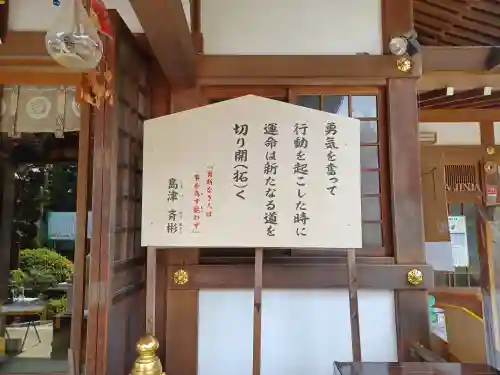 勇気を奮って
行動を起こした時に
運命は新たなる道を
切り開(拓)く
「勇断なき人は
事を為す能わず」
島津斉彬